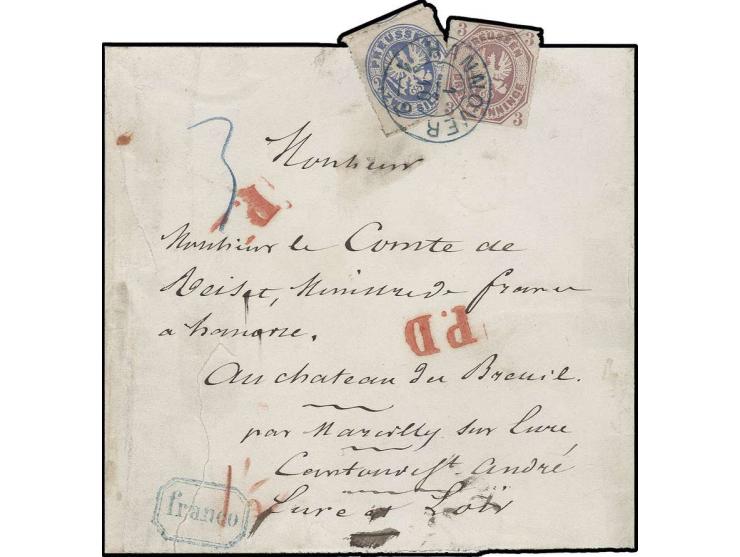 PREUSSEN
2
PREUSSEN
3 3
3
HANNOVER
3
Monsieur
P.
Monsieur le Comte de
Reiset, Ministre de france
a hanovre.
P.D
Au chateau du Breuil.
par Marcilly sur Eure
Canton de St. André
franco
Eure et Loir